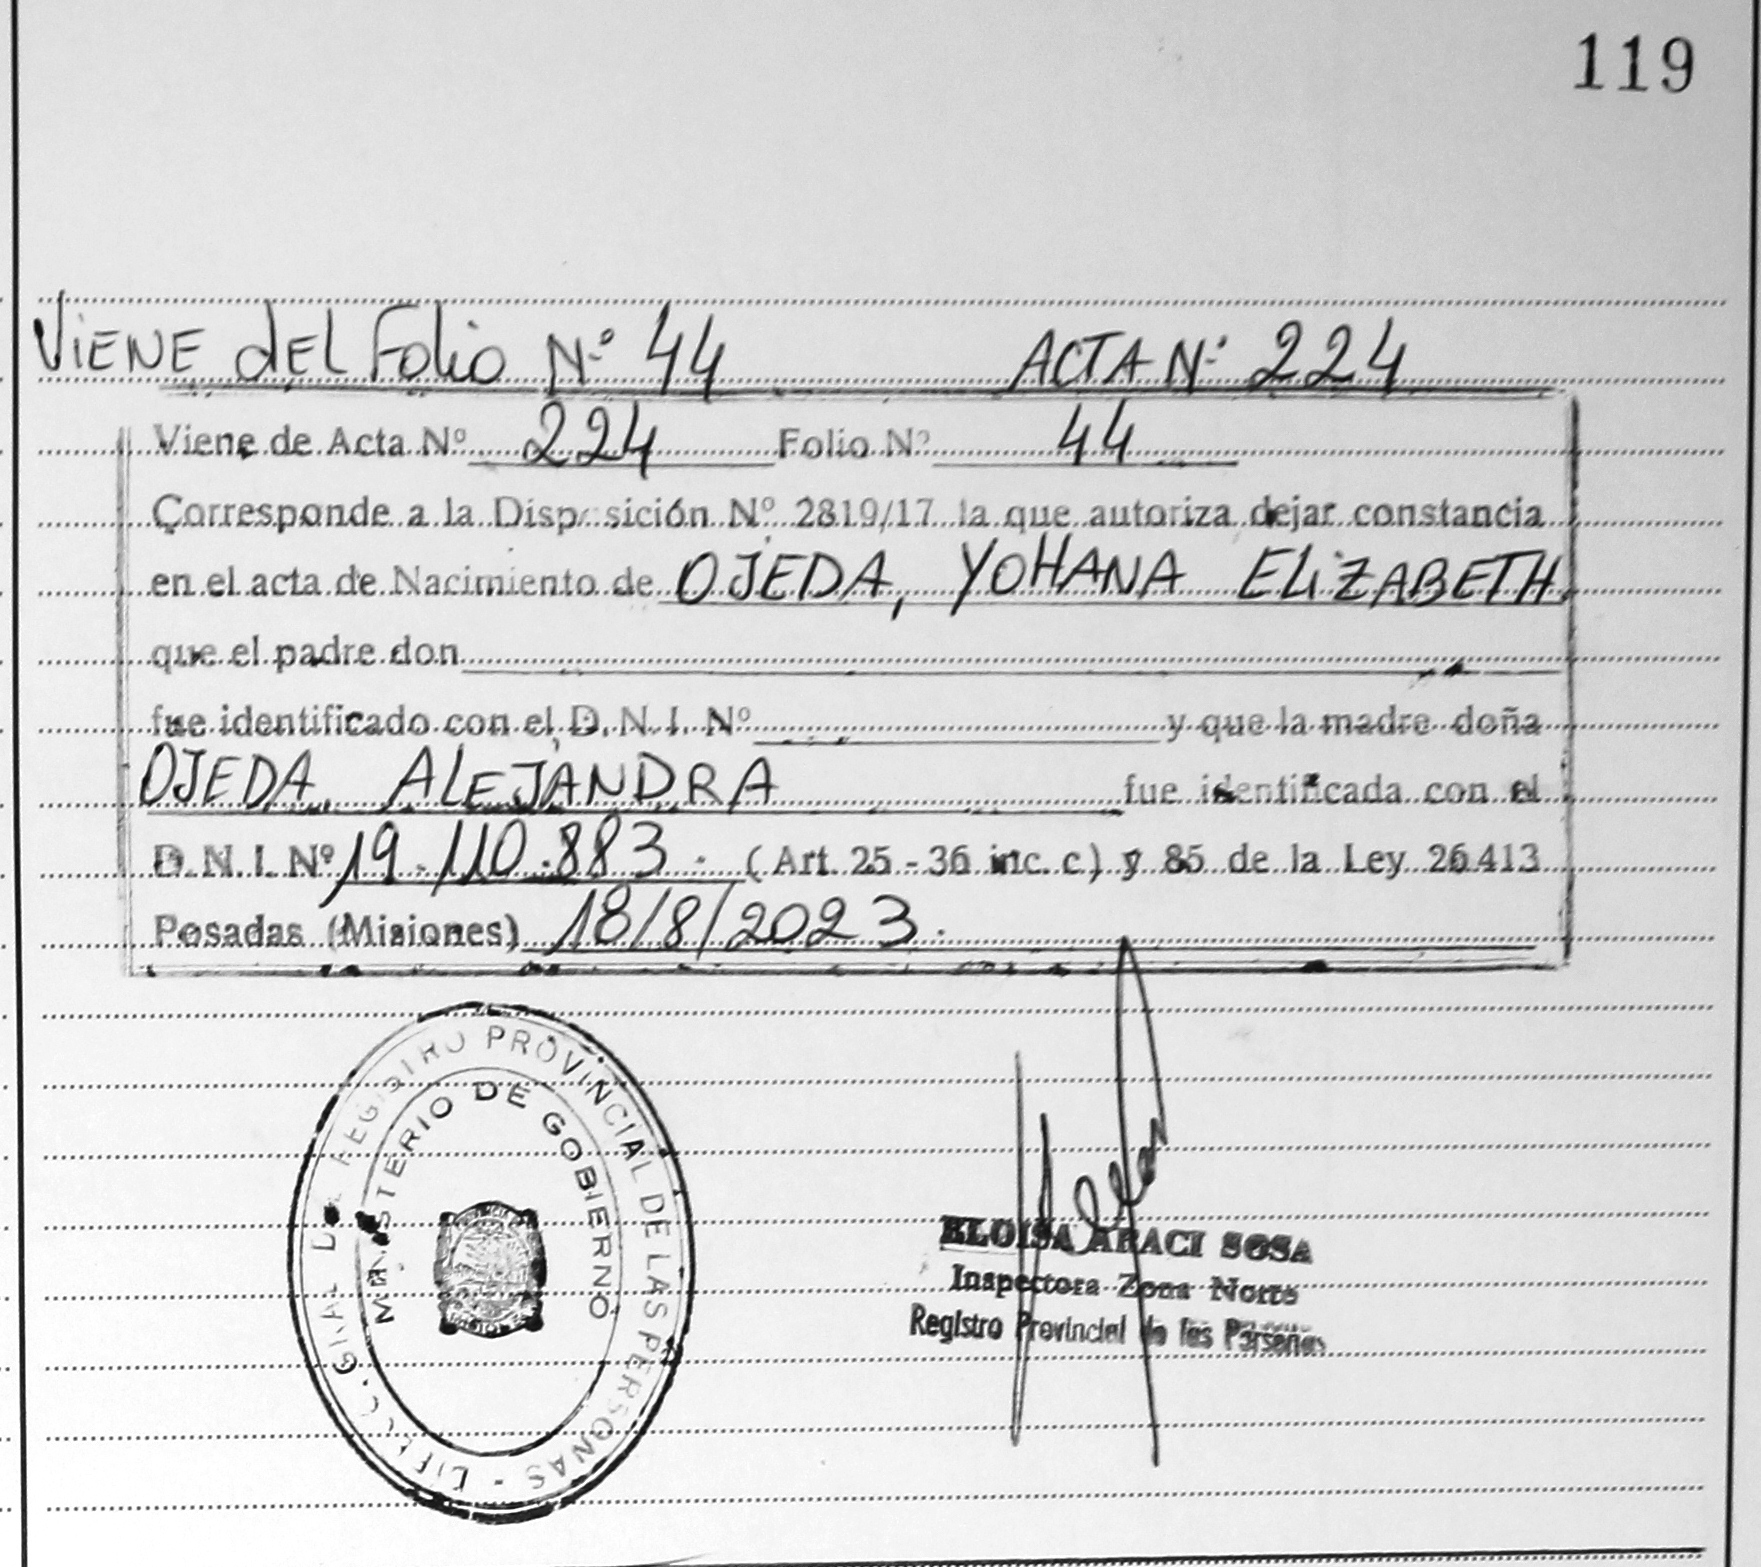 119
ViENE dEL Folio N.º 44 ACTA N.º 224
Viene de Acta Nº 224 Folio Nº 44
Corresponde a la Disposición Nº 2819/17 la que autoriza dejar constancia
en el acta de Nacimiento de OJEDA, YOHANA ELiZABETH.
que el padre don
fue identificado con el D. N. I. Nº y que la madre doña
OJEDA, ALEJANDRA fue identificada con el
D. N. I. Nº 19.110.883. (Art. 25 - 36 inc. c) y 85 de la Ley 26.413
Posadas (Misiones) 18/8/2023.
REGISTRO PROVINCIAL DE LAS PERSONAS
MINISTERIO DE GOBIERNO
ELOISA ARACI SOSA
Inspectora Zona Norte
Registro Provincial de las Personas